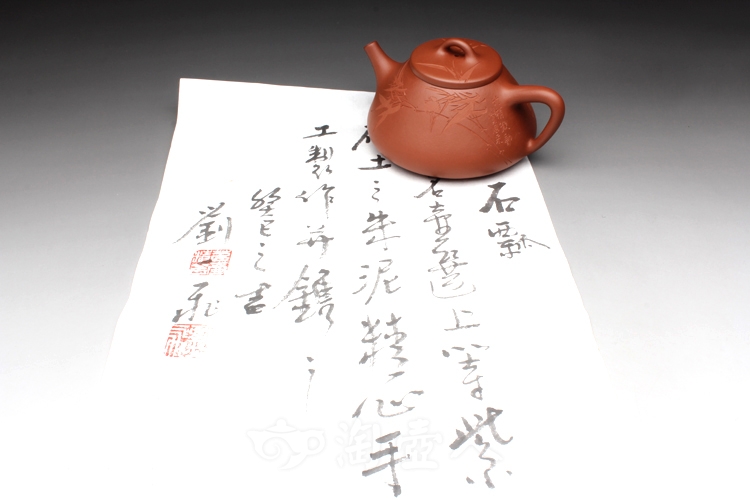 石瓢
名壶選上等紫
砂土之朱泥精心手
工製作并鐫之
癸巳之書
劉飛
淘壶